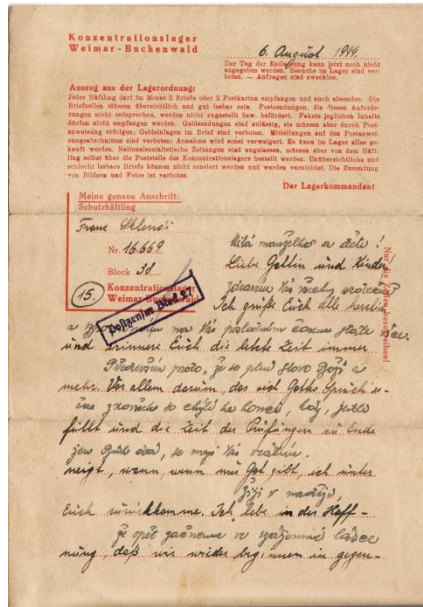 Konzentrationslager
Weimar - Buchenwald
6. August 1944.
Der Tag der Entlassung kann jetzt noch nicht
angegeben werden. Besuche im Lager sind ver-
boten. — Anfragen sind zwecklos.
Auszug aus der Lagerordnung:
Jeder Häftling darf im Monat 2 Briefe oder 2 Postkarten empfangen und auch absenden. Die
Briefzeilen müssen übersichtlich und gut lesbar sein. Postsendungen, die diesen Anforde-
rungen nicht entsprechen, werden nicht zugestellt bzw. befördert. Pakete jeglichen Inhalts
dürfen nicht empfangen werden. Geldsendungen sind zulässig, sie müssen aber durch Post-
anweisung erfolgen; Geldeinlagen im Brief sind verboten. Mitteilungen auf den Postanwei-
sungsabschnitten sind verboten; Annahme wird sonst verweigert. Es kann im Lager alles ge-
kauft werden. Nationalsozialistische Zeitungen sind zugelassen, müssen aber von dem Häft-
ling selbst über die Poststelle des Konzentrationslagers bestellt werden. Unübersichtliche und
schlecht lesbare Briefe können nicht zensiert werden und werden vernichtet. Die Zusendung
von Bildern und Fotos ist verboten.
Der Lagerkommandant
Meine genaue Anschrift:
Schutzhäftling
Franz
Nr. 16.669
Block 38
15. Konzentrationslager
Weimar-Buchenwald
Postzensur
Milá manželko a děti!
Liebe Gattin und Kinder
Vás všechny
Ich grüße Euch alle herzlich
a na Vás poslední
und erinnere Euch die letzte Zeit immer
Především proto, že se slovo Boží a
mehr. Vor allem darum, das sich Gottes Spruch er-
se chýlí ke konci, kdy,
füllt und die Zeit der Prüfungen zu Ende
se mezi Vás vrátím.
neigt, wenn, wenn mir Got gibt, ich unter
Žiji v naději,
Euch zurückkomme. Ich lebe in der Hoff-
že opět začneme ve vzájemné lásce
nung, daß wir wieder beginnen in gegen-